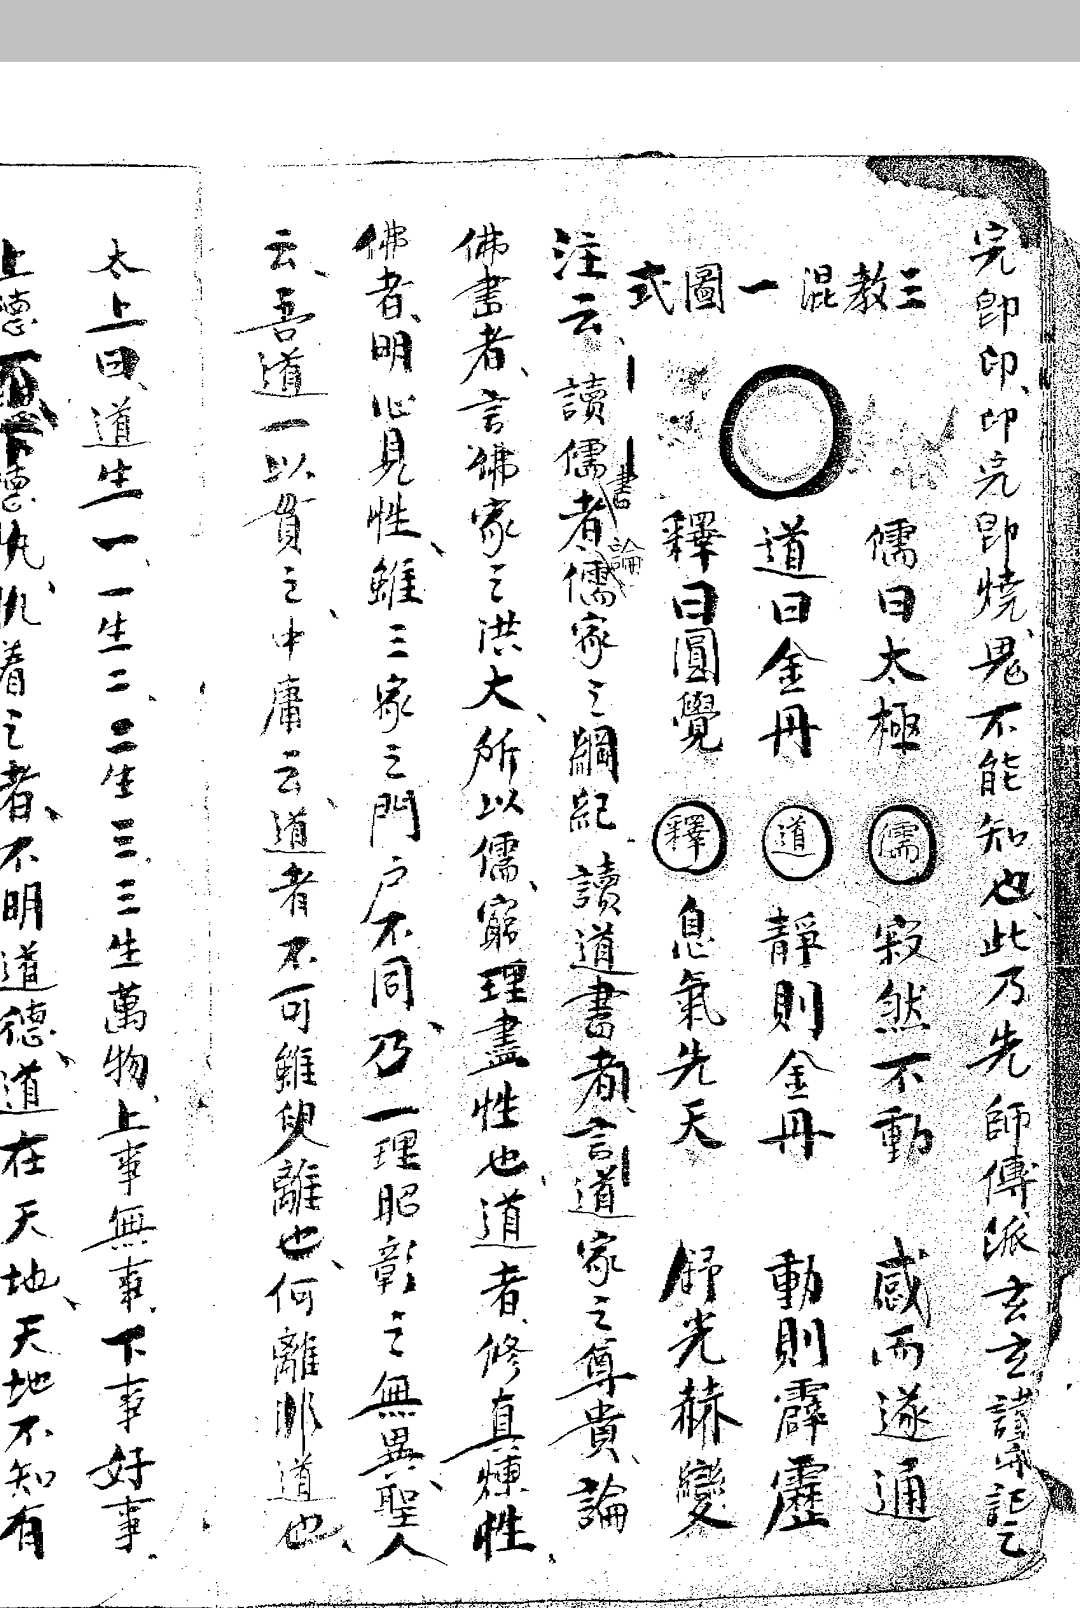 完卽印印完卽燒鬼不能知也此乃先師傳派玄玄謹守記之
三教混一圖式
儒曰太極 儒 寂然不動 感而遂通
道曰金丹 道 靜則金丹 動則霹靂
釋曰圓覺 釋 息氣先天 舒光赫變
注云 讀儒者儒家之綱紀 讀道書者言道家之尊貴論
書論
佛書者言佛家之洪大所以儒窮理盡性也道者修真煉性
佛者明心見性雖三家之門户不同乃一理昭彰之無異聖人
云吾道一以貫之中庸云道者不可雖臾離也何離非道也
太上曰道生一一生二二生三三生萬物上事無事下事好事
上德 下德 執執着之者不明道德道在天地天地不知有